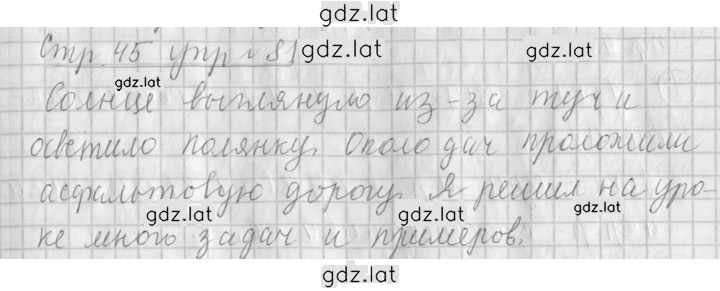 gdz.lat
Стр. 45 упр № 81
gdz.lat gdz.lat
gdz.lat
Солнце выглянуло из-за туч и
осветило полянку. Около дач проложили
асфальтовую дорогу. Я решил на уро-
gdz.lat gdz.lat gdz.lat
ке много задач и примеров.
gdz.lat